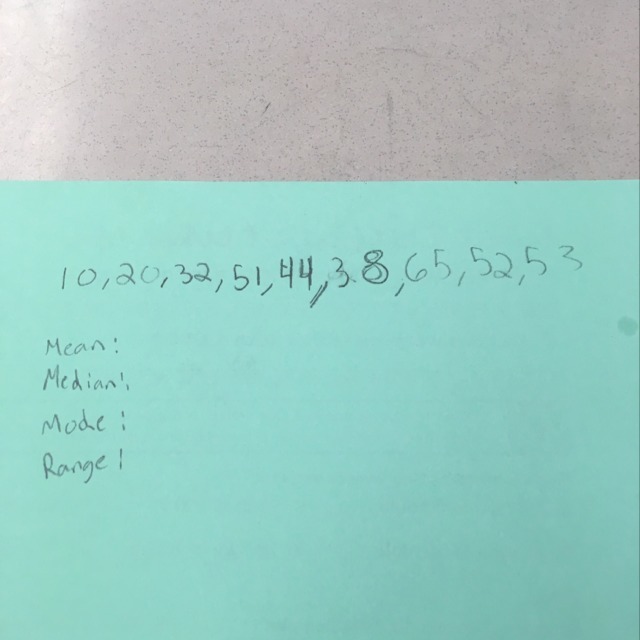 10,20,32,51,44,38,65,52,53
Mean:
Median:
Mode:
Range: